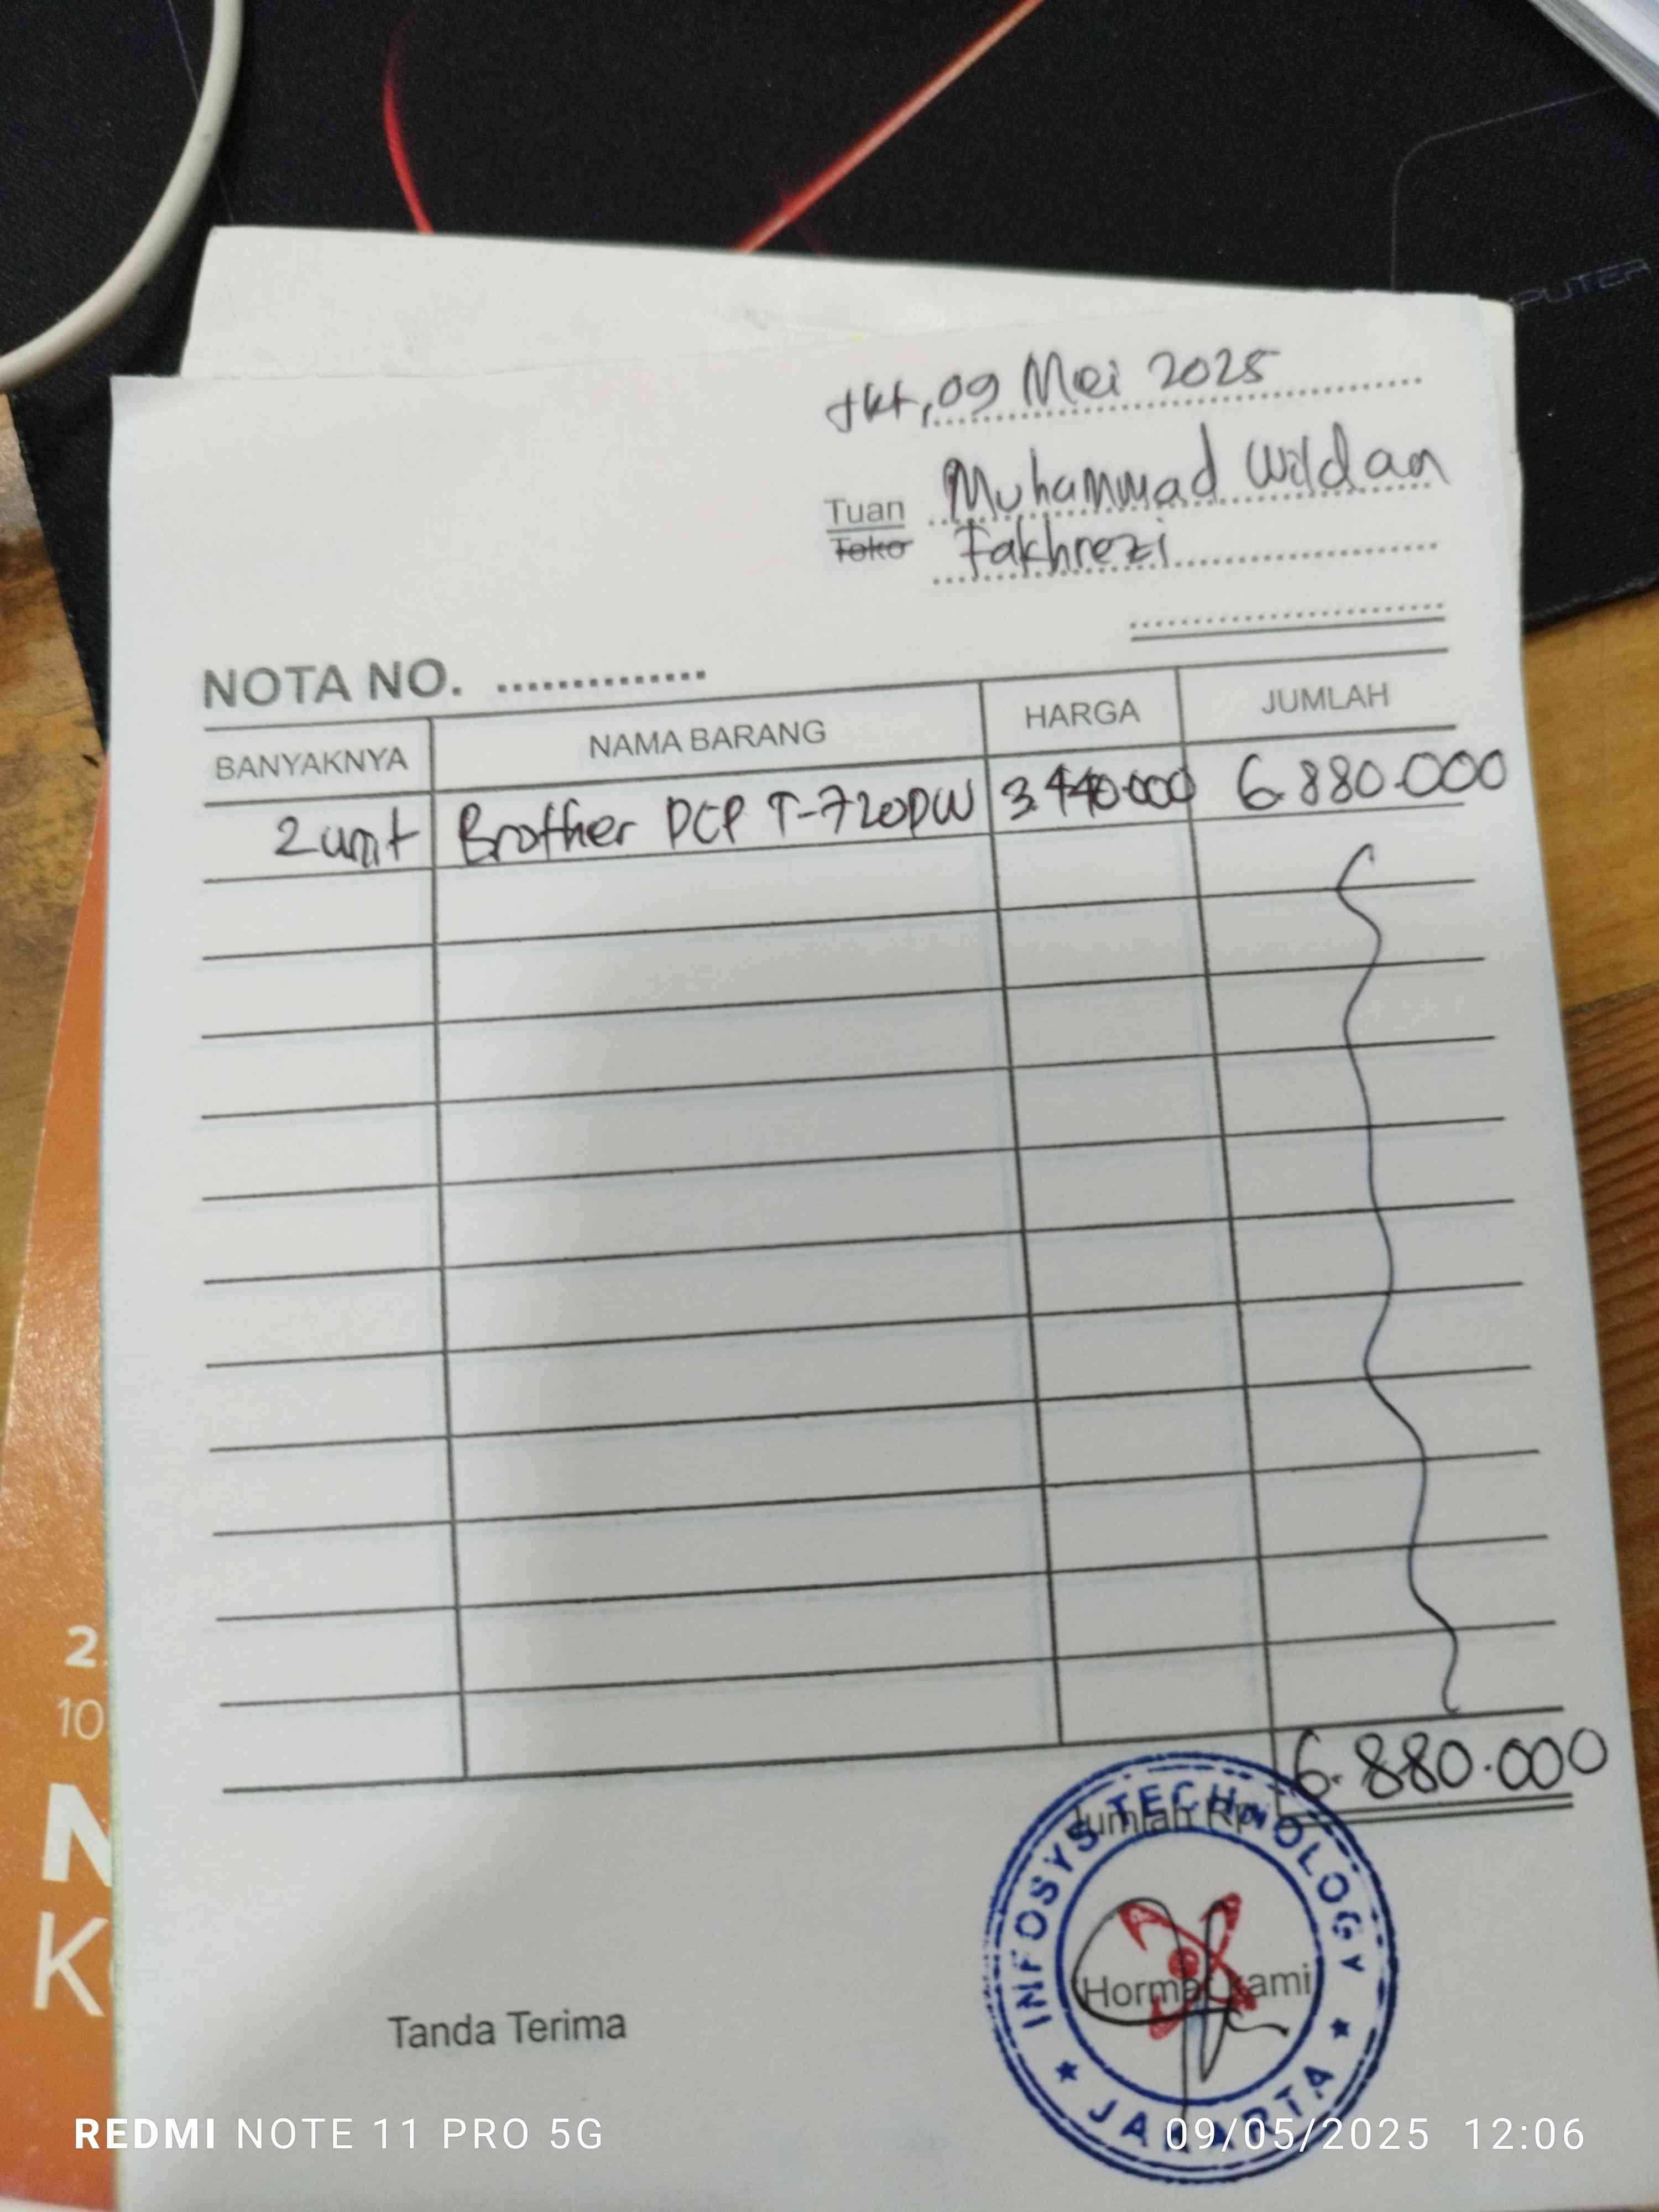 PUTER
Jkt, 09 Mei 2025
Tuan Muhammad Wildan
Toko Fakhrezi
NOTA NO. ..............
BANYAKNYA NAMA BARANG HARGA JUMLAH
2 unit Brother DCP T-720DW 3.440.000 6.880.000
Jumlah Rp. 6.880.000
INFOSYS TECHNOLOGY
JAKARTA
Tanda Terima Hormat kami
2.
10
N
K
REDMI NOTE 11 PRO 5G 09/05/2025 12:06